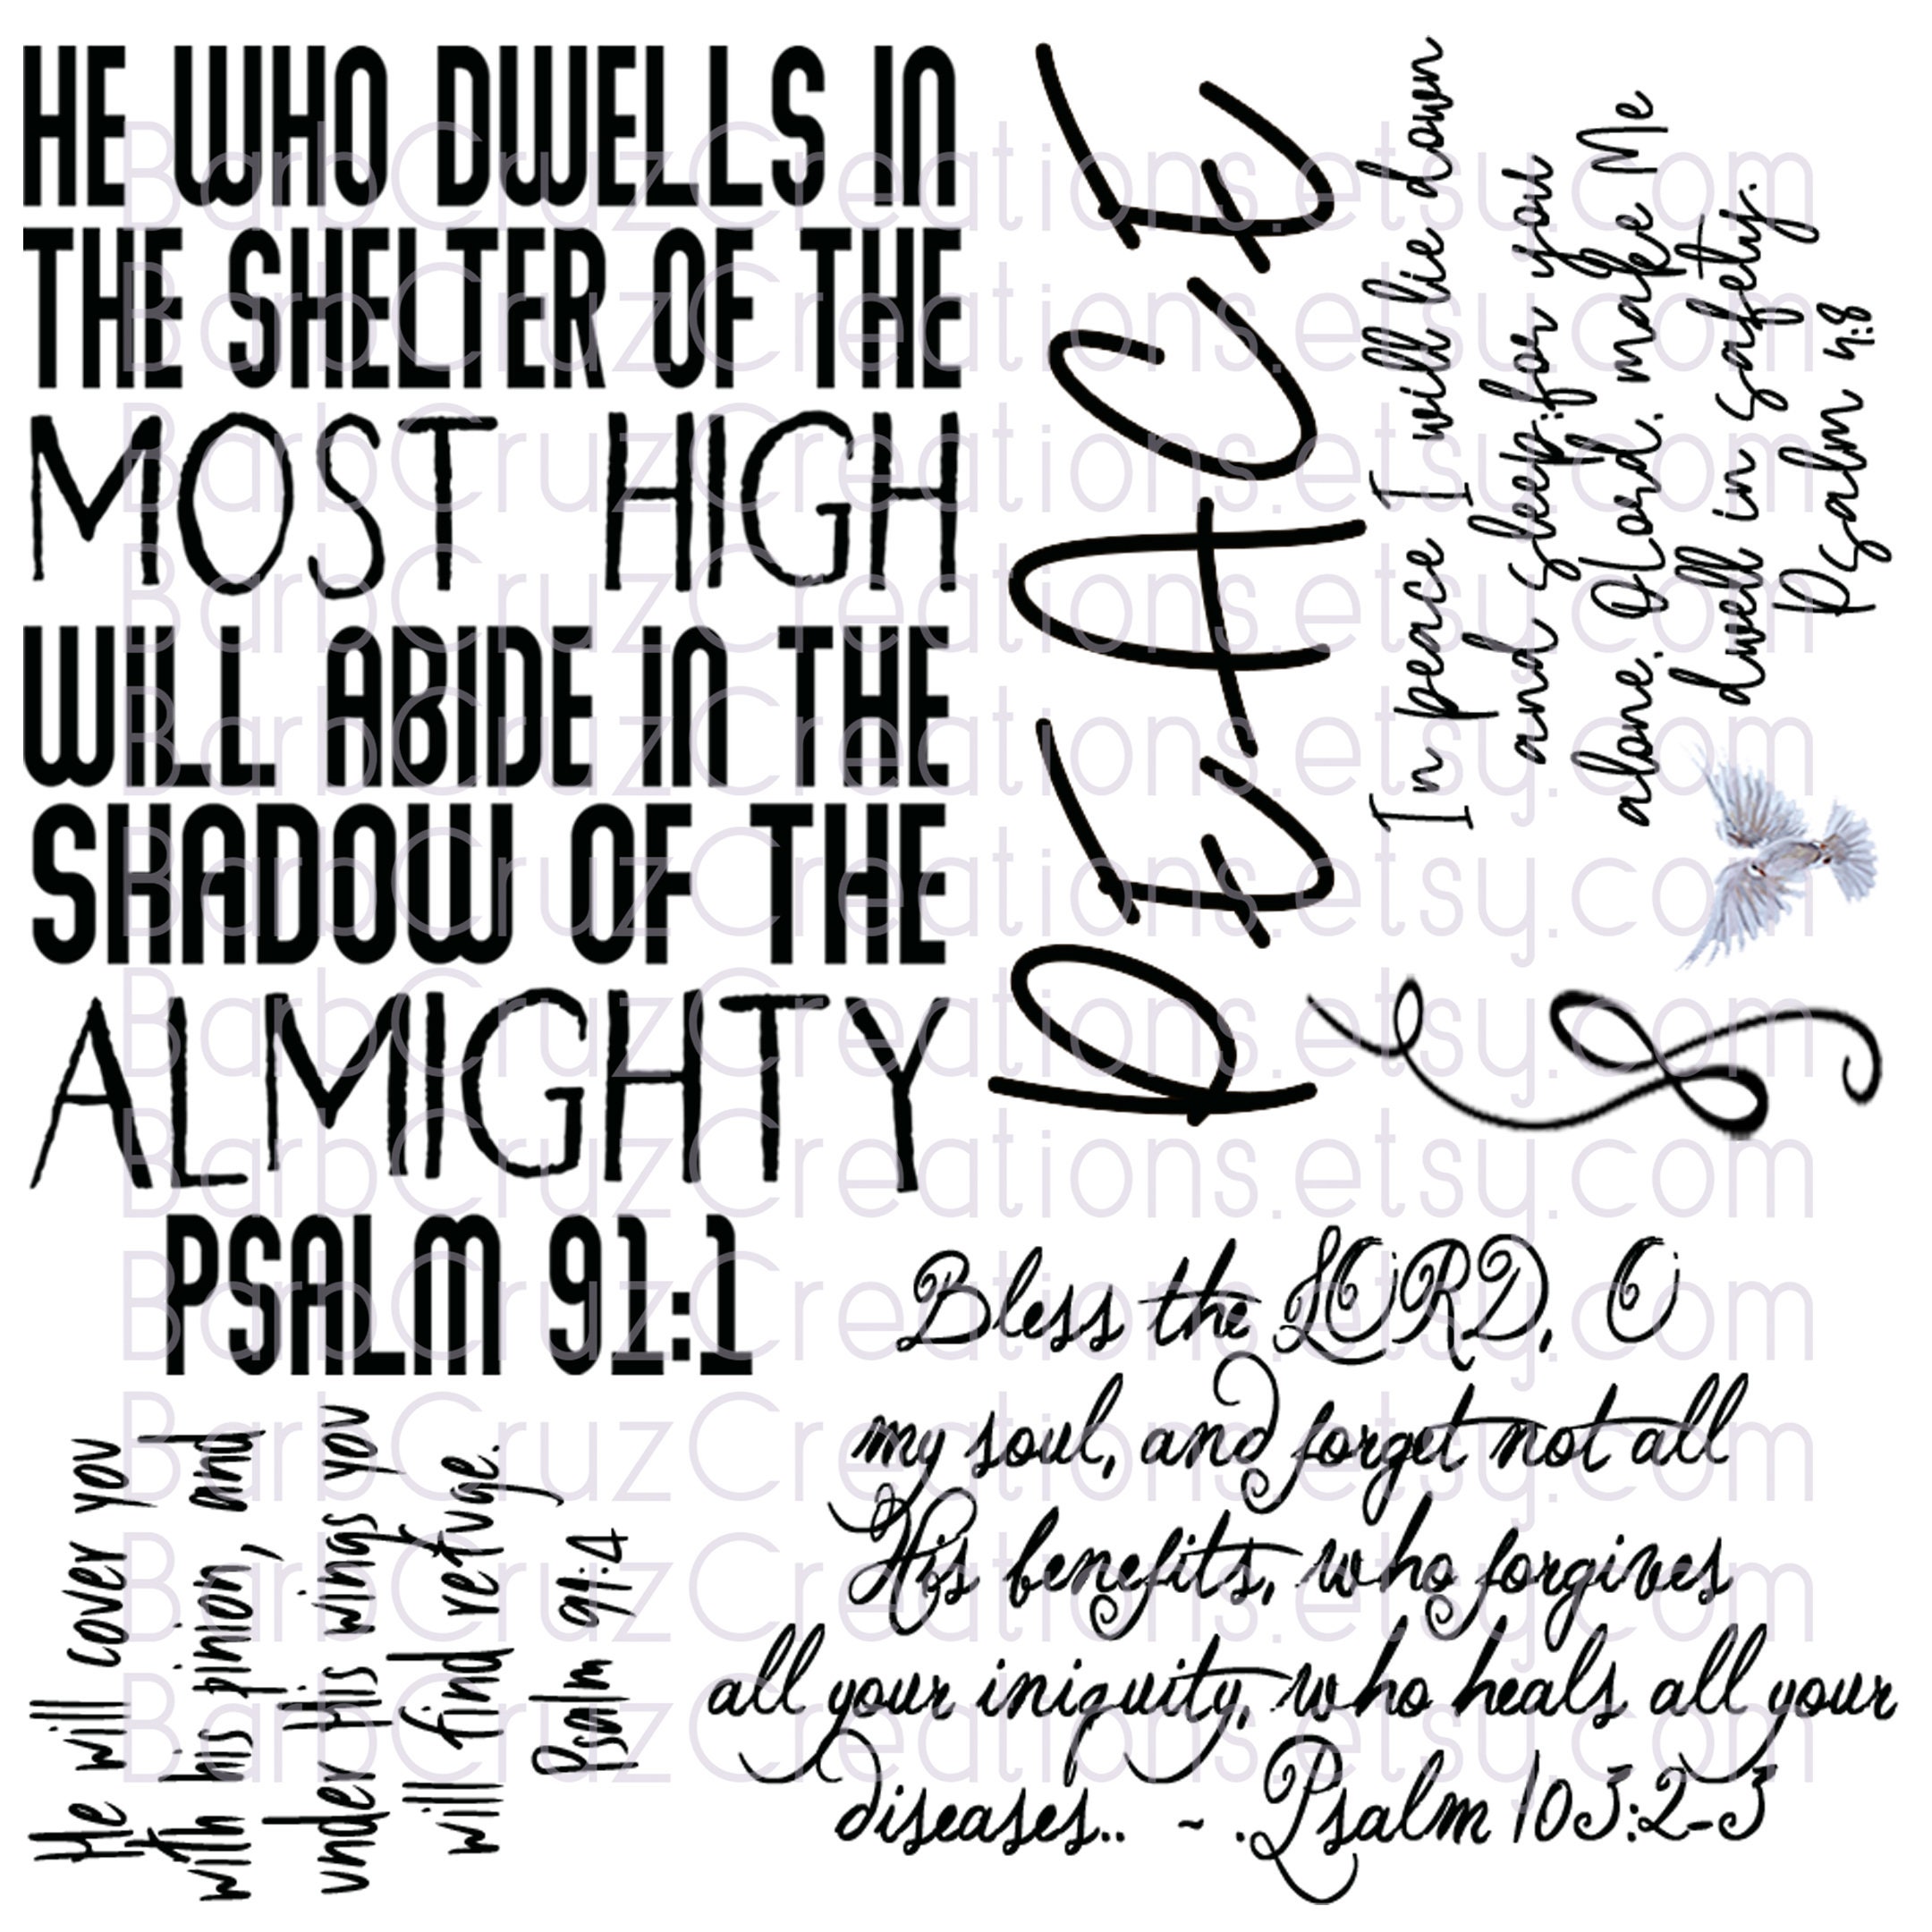 HE WHO DWELLS IN
THE SHELTER OF THE
MOST HIGH
WILL ABIDE IN THE
SHADOW OF THE
ALMIGHTY
PSALM 91:1
PEACE
In peace I will lie down
and sleep, for you
alone, O Lord, make Me
dwell in safety.
Psalm 4:8
He will cover you
with his pinion, and
under His wings you
will find refuge.
Psalm 91:4
Bless the LORD, O
my soul, and forget not all
His benefits, who forgives
all your iniquity, who heals all your
diseases.. ~ .Psalm 103:2-3
BarbCruzCreations.etsy.com
BarbCruzCreations.etsy.com
BarbCruzCreations.etsy.com
BarbCruzCreations.etsy.com
BarbCruzCreations.etsy.com
BarbCruzCreations.etsy.com
BarbCruzCreations.etsy.com
BarbCruzCreations.etsy.com
BarbCruzCreations.etsy.com
BarbCruzCreations.etsy.com
BarbCruzCreations.etsy.com
BarbCruzCreations.etsy.com